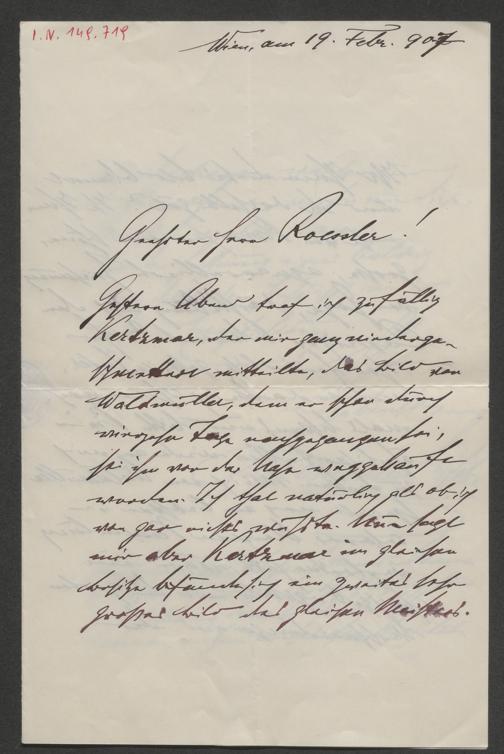 I.N. 149.719
Wien, am 19. Febr. 907
Geehrter Herr Roessler!
Gestern Abend traf ich zufällig
Kertzmar, der mir ganz niederge-
schmettert mitteilte, das Bild von
Waldmüller, dem er schon durch
vierzehn Tage nachgegangen sei,
sei ihm vor der Nase weggekauft
worden. Ich that natürlich als ob ich
von gar nichts wüsste. Nun sagt
mir aber Kertzmar im gleichen
Besitze befände sich ein zweites sehr
großes Bild des gleichen Meisters.